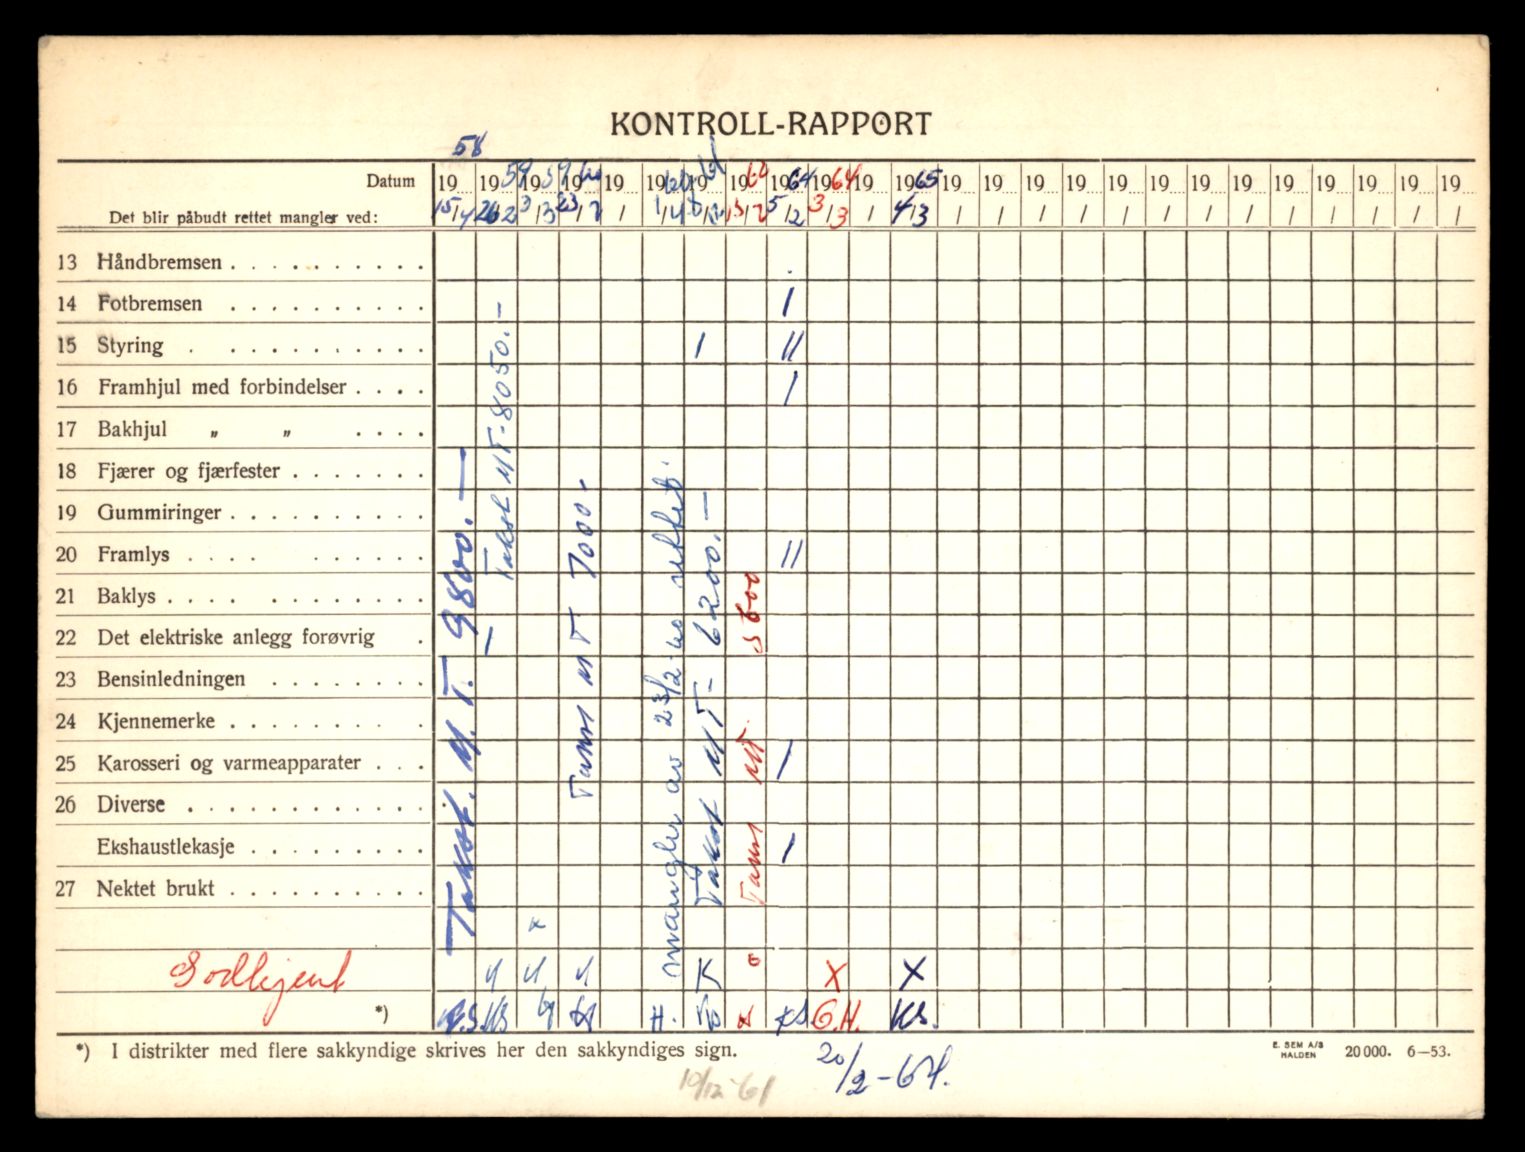 KONTROLL-RAPPORT
58 59 59 60 60 61 62 64 64 65
Datum 19 19 19 19 19 19 19 19 19 19 19 19 19 19 19 19 19 19 19 19 19 19 19 19 19
Det blir påbudt rettet mangler ved: 15/4 26/2 3/3 23/2 / 1/4 15/2 5/2 3/3 / 4/3 / / / / / / / / / / / / /
13 Håndbremsen
14 Fotbremsen I
15 Styring I II
16 Framhjul med forbindelser I
17 Bakhjul „ „
18 Fjærer og fjærfester
19 Gummiringer
20 Framlys II
21 Baklys
22 Det elektriske anlegg forøvrig I
23 Bensinledningen
24 Kjennemerke
25 Karosseri og varmeapparater I
26 Diverse
Ekshaustlekasje I
27 Nektet brukt
Takst. M.T. 9800.—
Takst MT-8050.-
Takst MT 7000.-
mangler av 23/2-60 rettet.
Takst MT- 6200.—
Takst MT. 5600
x
Godkjent K X X
*) KS H. KS G.H. KS.
*) I distrikter med flere sakkyndige skrives her den sakkyndiges sign.
E. SEM A/S HALDEN 20 000. 6—53.
20/2-64.
10/12-61